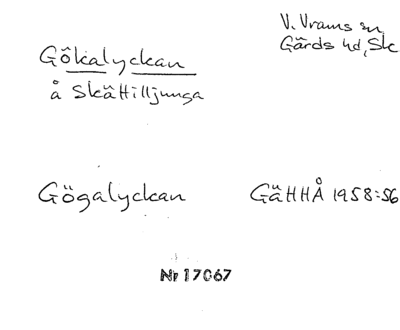 V. Vrams sn
Gärds hd, Sk
Gökalyckan
å Skättilljunga
Gögalyckan GäHHÅ 1958:56
Nr 17067